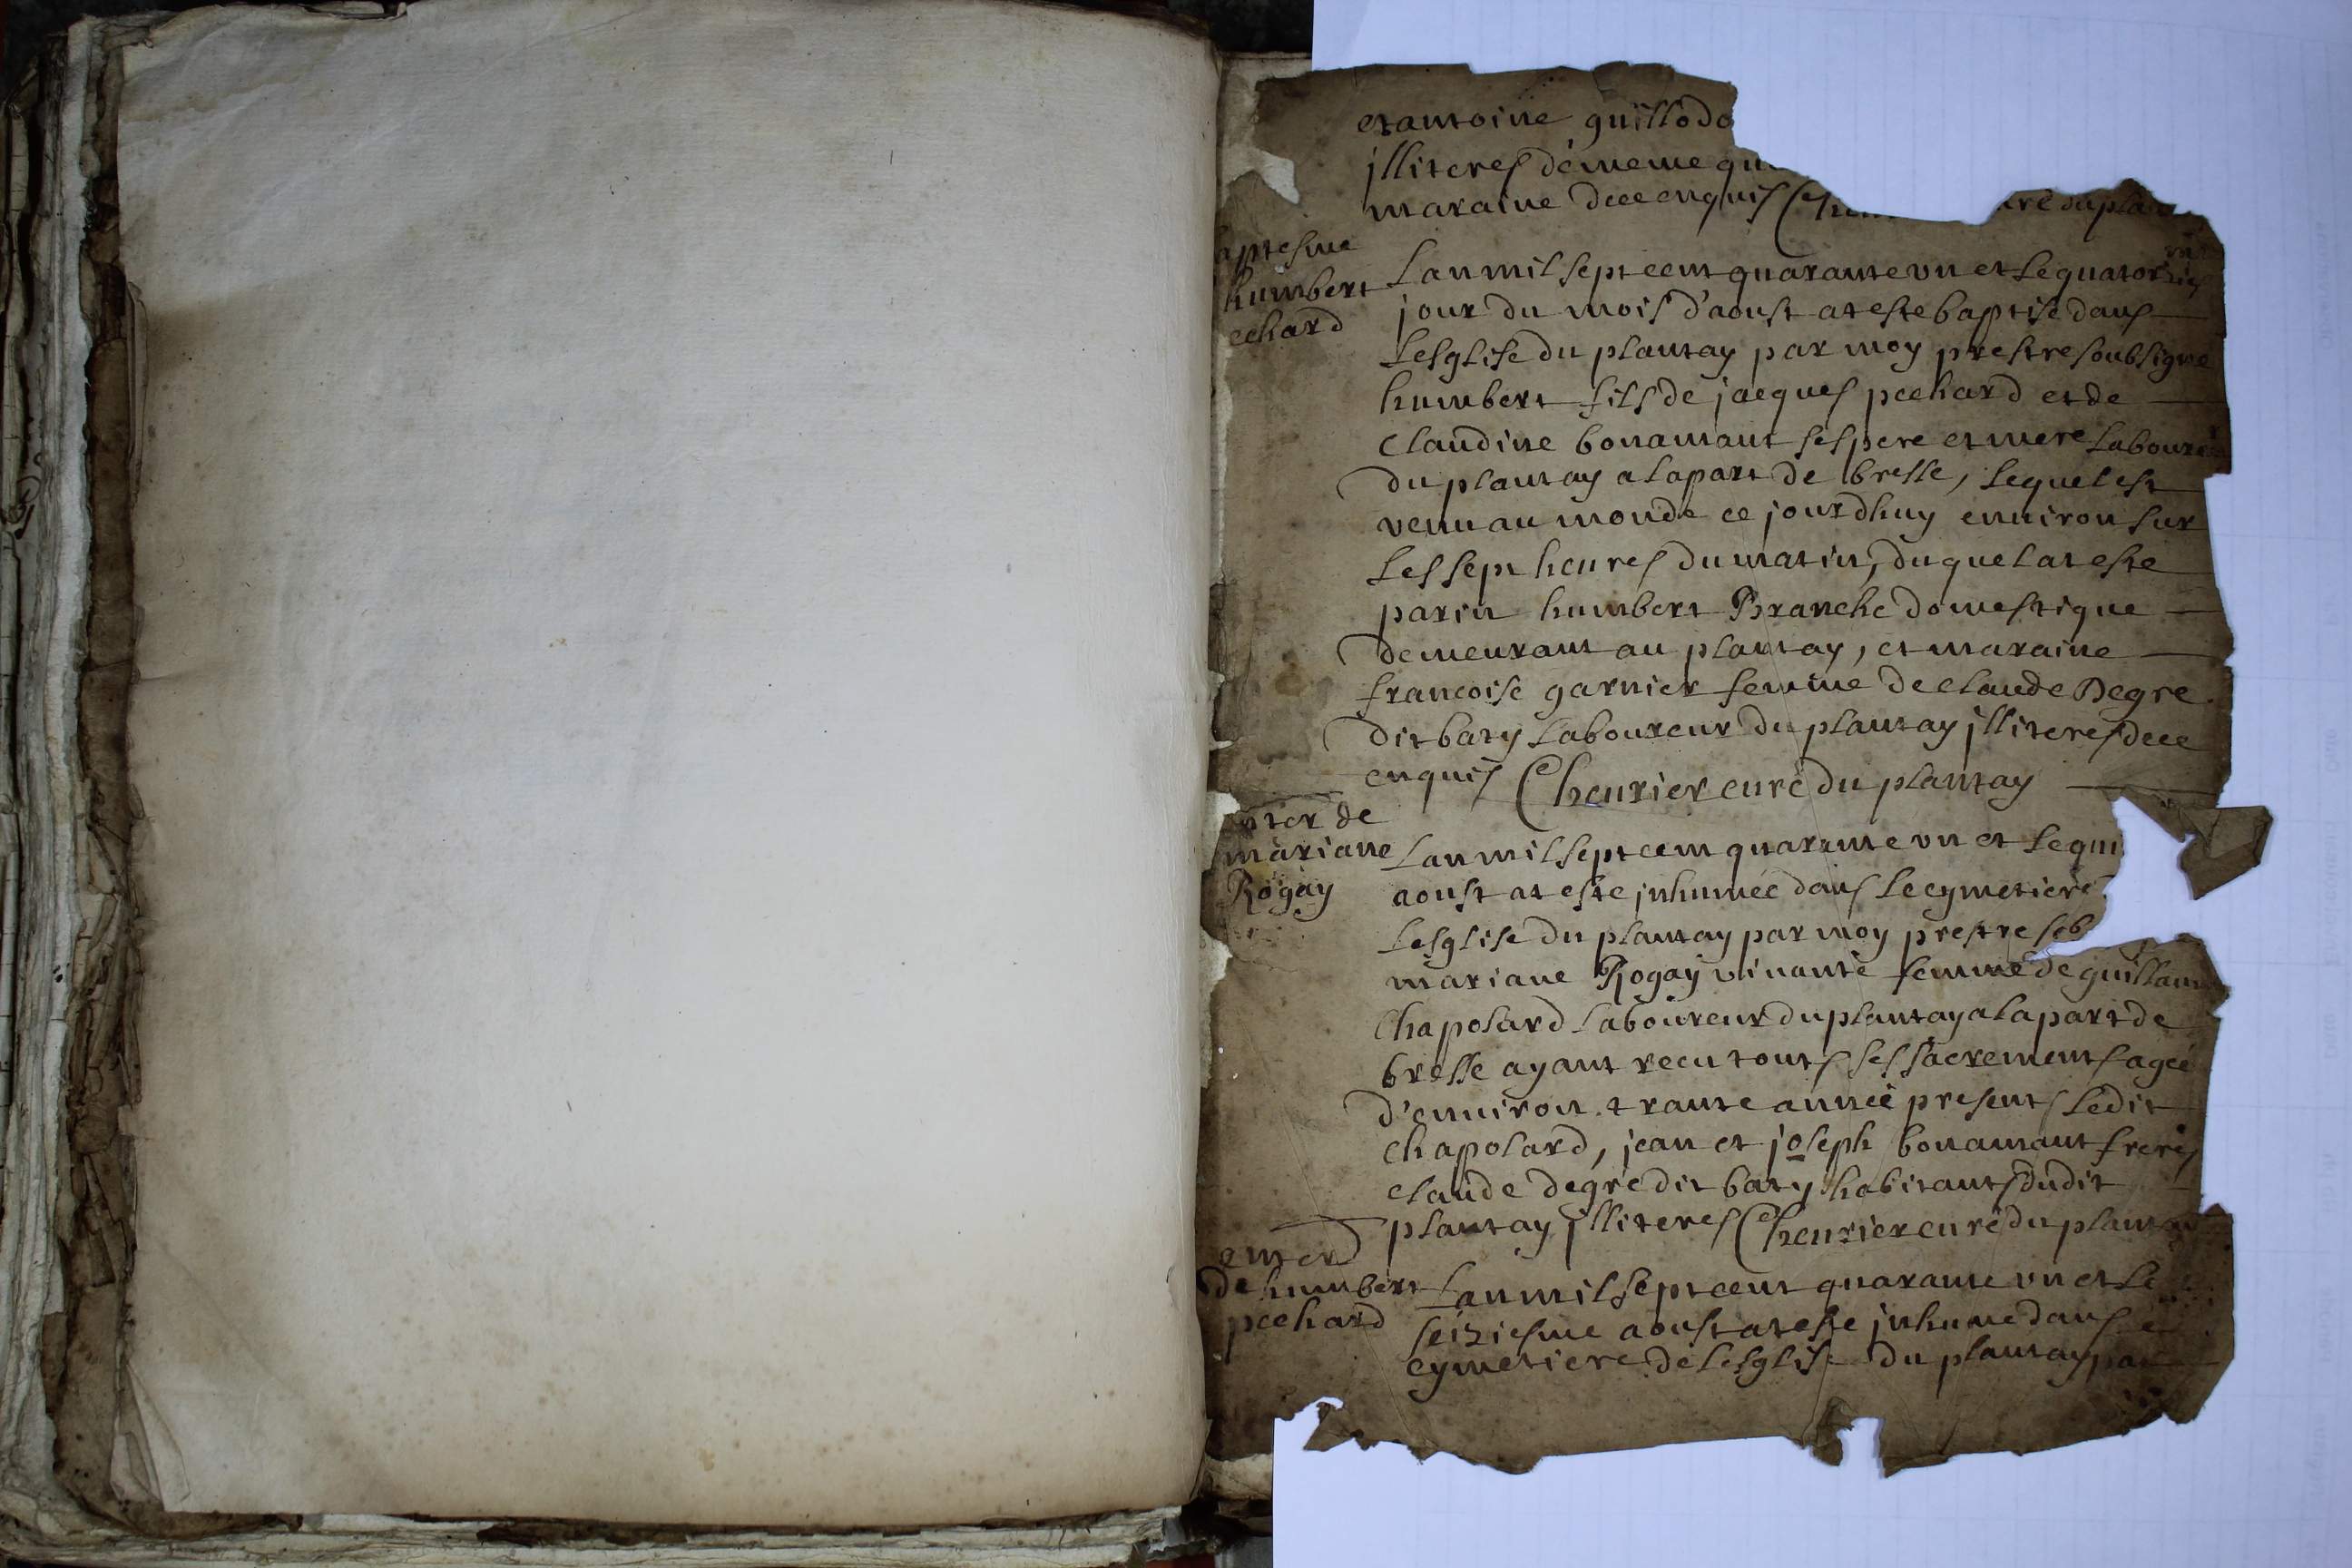 et antoine guillodo
illiteres de meme qu
maraine dece enquis Che cure du pla
aptesme
humbert
echard
Lan mil sept cent quarante un et le quatorzies
jour du mois d'aoust at este baptisé dans
Lesglise du plantay par moy prestre soubsigne
humbert fils de jacques pechard et de
Claudine bonamant ses pere et mere Laboure
du plantay a la part de bresse, lequel est
venu au monde ce jourdhuy environ sur
les sept heures du matin, duquel at este
parin humbert Branche domestique
demeurant au plantay, et maraine
francoise garnier femme de claude Degre
dit baty Laboureur du plantay illiteres dece
enquis Chenrier curé du plantay
nter de
mariane
Rogay
Lan mil sept cent quarante un et le qui
aoust at este inhumée dans le cymetiere
Lesglise du plantay par moy prestre sob
mariane Rogay vivante femme de guillau
Chapolard Laboureur du plantay a la part de
bresse ayant recu touts ses sacrements agée
d'environ trante année presents ledit
chapolard, jean et joseph bonamant freres
claude degré dit baty habitants dudit
plantay illiteres Chenrier curé du plantay
enter
de humbert
pechard
Lan mil sept cent quarante un et le
seiziesme aoust at este inhumé dans le
cymetiere de Lesglise du plantay par